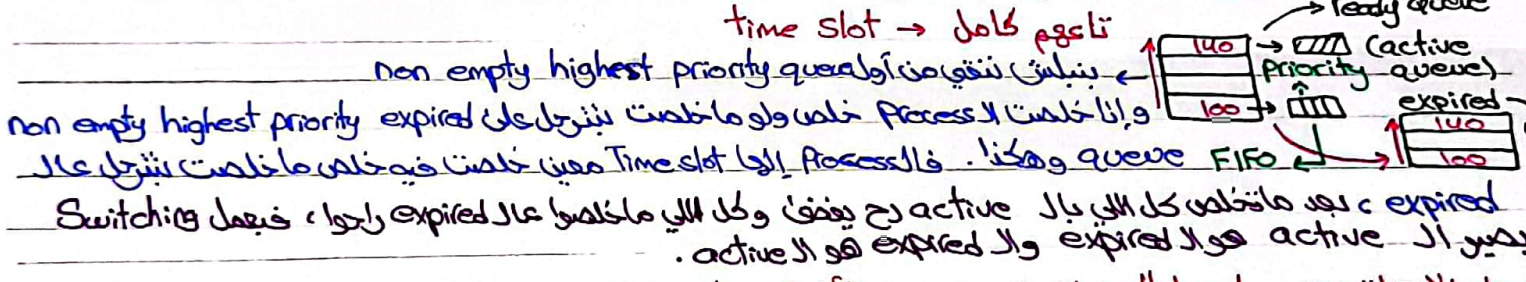 تاعهم كامل → time slot
ready queue
140 (active
priority queue)
100
FIFO
expired
140
100
← بنبلش ننقي من أول non empty highest priority queue
وإذا خلصت الـ Process خلص ولو ما خلصت بتنزل على non empty highest priority expired
queue وهكذا. فالـ Process إلها Time slot معين خلصت فيه خلص ما خلصت بتنزل عالـ
expired ، بعد ما تخلص كل اللي بالـ active رح يفضى وكل اللي ما خلصوا عالـ expired راحوا ، فبعمل Switching
بصير الـ active هو الـ expired والـ expired هو الـ active .